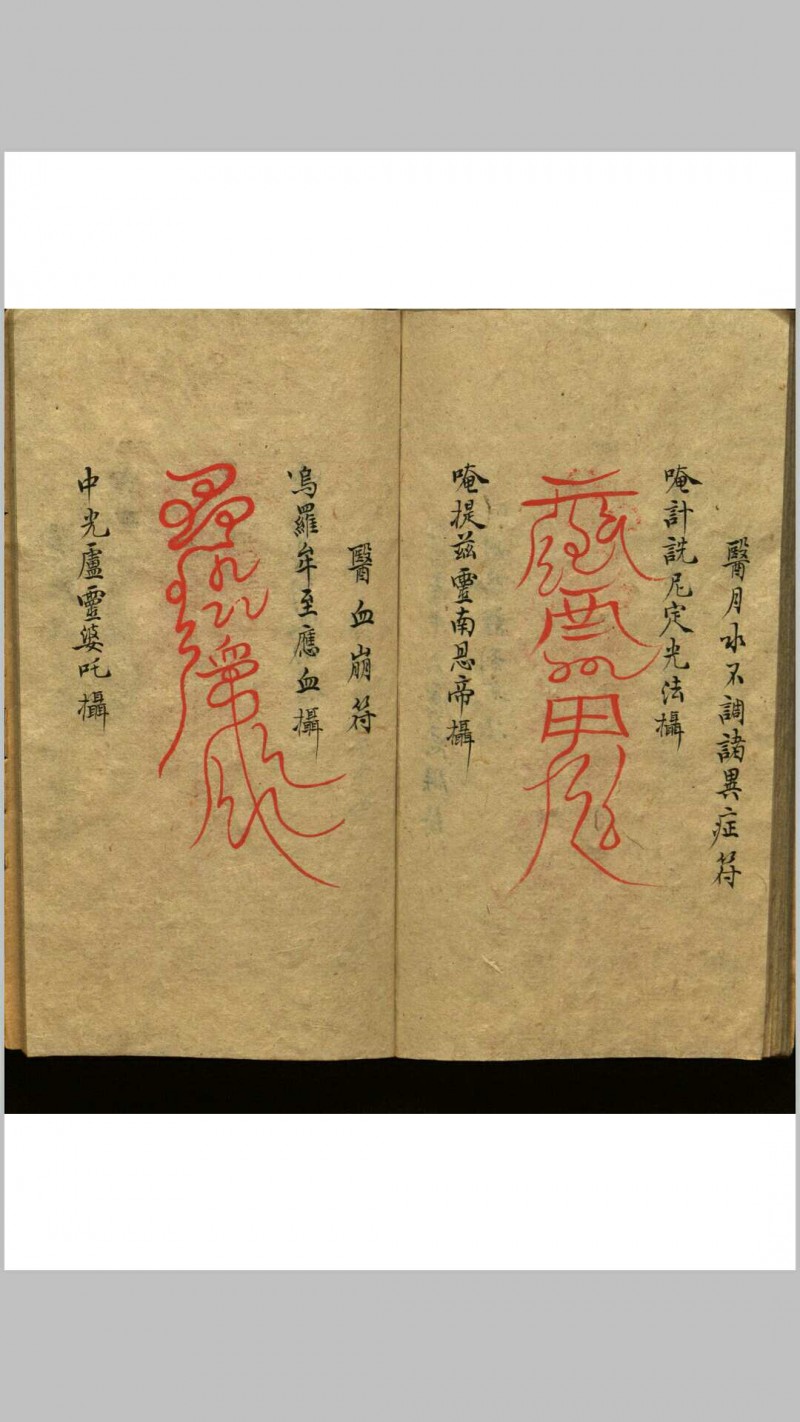 醫月水不調諸異症符
唵計詵尼定光法攝
唵提茲靈南恩帝攝
醫血崩符
嗚羅牟至應血攝
中光盧靈婆吒攝